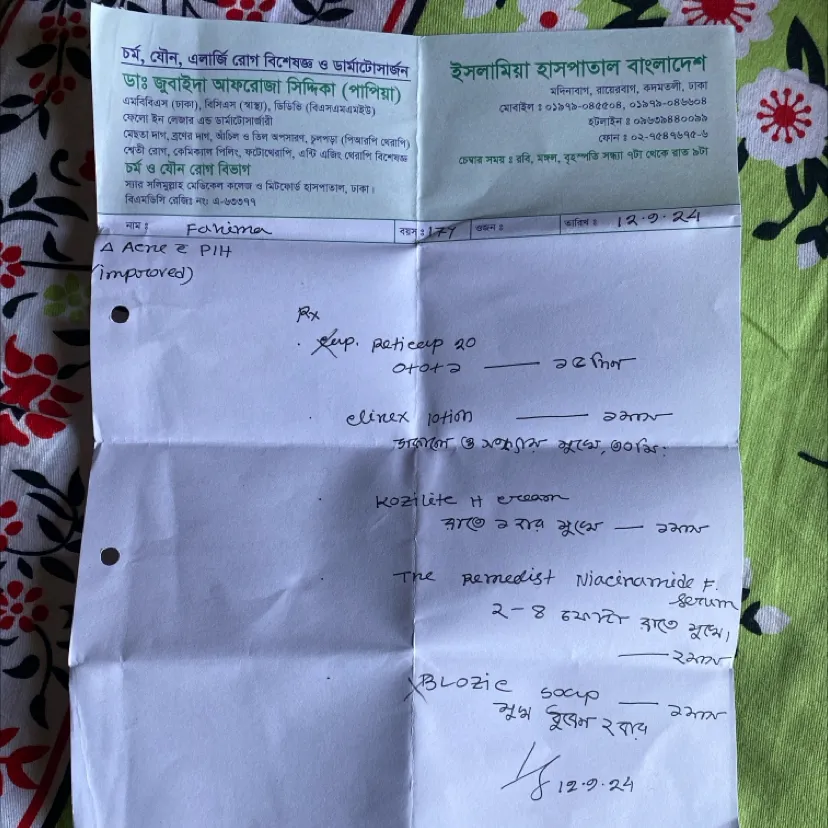 চর্ম, যৌন, এলার্জি রোগ বিশেষজ্ঞ ও ডার্মাটোসার্জন
ডাঃ জুবাইদা আফরোজা সিদ্দিকা (পাপিয়া)
এমবিবিএস (ঢাকা), বিসিএস (স্বাস্থ্য), ডিডিভি (বিএসএমএমইউ)
ফেলো ইন লেজার এন্ড ডার্মাটোসার্জারী
মেছতা দাগ, ব্রণের দাগ, আঁচিল ও তিল অপসারণ, চুলপড়া (পিআরপি থেরাপি)
শ্বেতী রোগ, কেমিক্যাল পিলিং, ফটোথেরাপি, এন্টি এজিং থেরাপি বিশেষজ্ঞ
চর্ম ও যৌন রোগ বিভাগ
স্যার সলিমুল্লাহ মেডিকেল কলেজ ও মিটফোর্ড হাসপাতাল, ঢাকা।
বিএমডিসি রেজিঃ নং এ-৬৩৩৭৭
ইসলামিয়া হাসপাতাল বাংলাদেশ
মদিনাবাগ, রায়েরবাগ, কদমতলী, ঢাকা
মোবাইল : ০১৯৭৯-০৪৫৫০৪, ০১৯৭৯-০৪৬৬০৪
হটলাইন : ০৯৬৩৯৪৪০০৯৯
ফোন : ০২-৭৫৪৭৬৭৫-৬
চেম্বার সময় : রবি, মঙ্গল, বৃহস্পতি সন্ধ্যা ৭টা থেকে রাত ৯টা
নাম : Fahima বয়স : 17Y ওজন : তারিখ : 12.9.24
Δ Acne c PIH
(improved)
Rx
Cap. Reticap 20
০+০+১ — ১৫ দিন
clinex lotion — ১ মাস
সকালে ও সন্ধ্যায় মুখে, ৩০ মি:
Kozilite H cream
রাতে ১ বার মুখে — ১ মাস
The Remedist Niacinamide F. serum
২-৪ ফোটা রাতে মুখে।
— ২ মাস
Blozie soap — ১ মাস
মুখ ধুবেন ২ বার
12.9.24